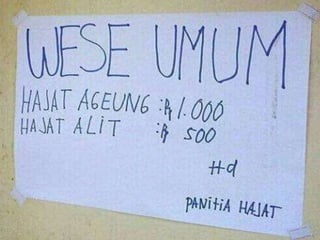 WESE UMUM
HAJAT AGEUNG : Rp 1.000
HAJAT ALIT : Rp 500
Hd
PANITIA HAJAT